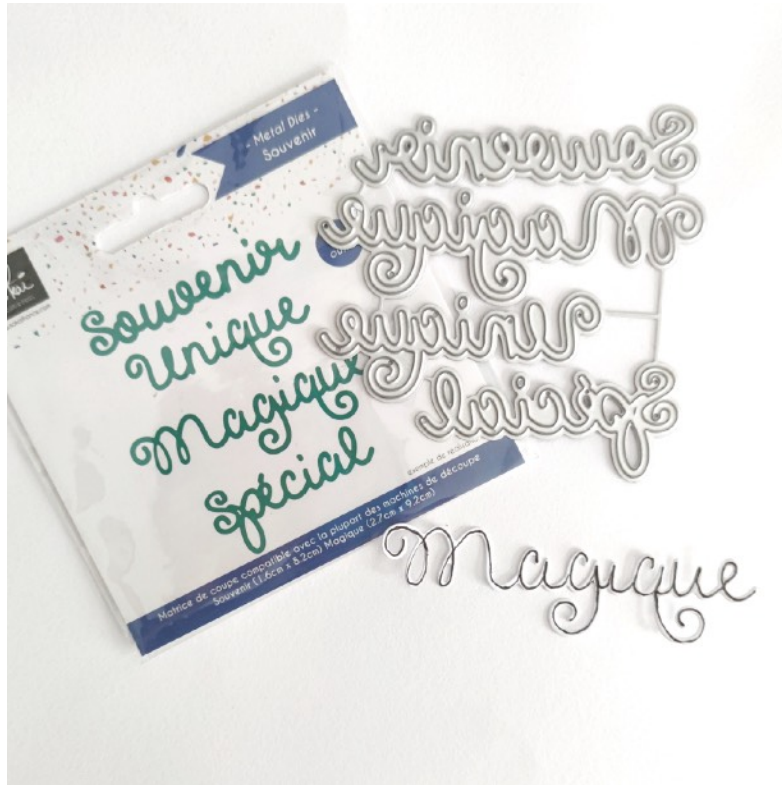 - Metal Dies -
Souvenir
Souvenir
Unique
Magique
Spécial
exemple de
Matrice de coupe compatible avec la plupart des machines de découpe
Souvenir (1.6cm x 8.2cm) Magique (2.7cm x 9.2cm)
Souvenir
Magique
Unique
Spécial
Magique